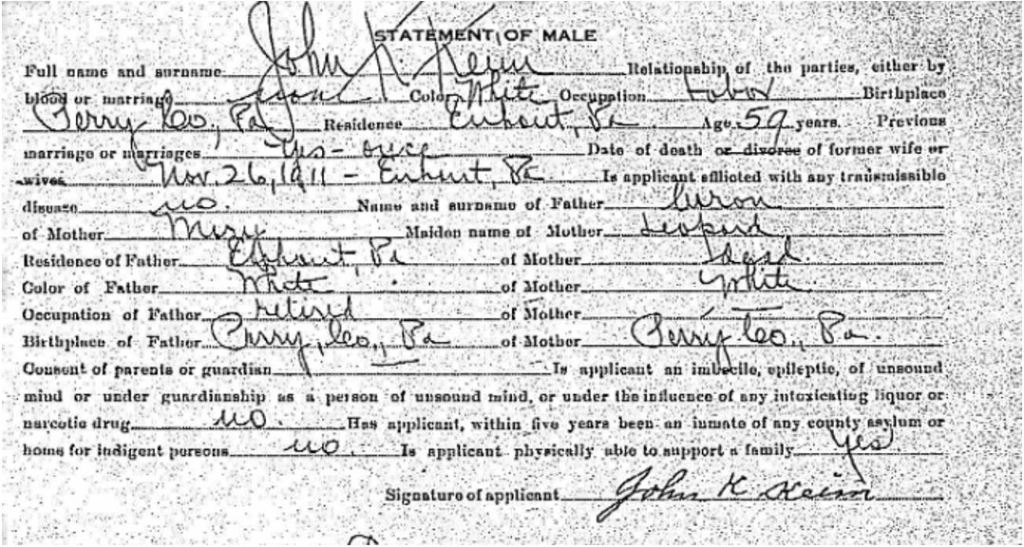 STATEMENT OF MALE
Full name and surname John K Keim Relationship of the parties, either by
blood or marriage none Color White Occupation Labor Birthplace
Perry Co, Pa Residence Enhaut, Pa Age 59 years. Previous
marriage or marriages yes - once Date of death or divorce of former wife or
wives Nov. 26, 1911 - Enhaut, Pa Is applicant afflicted with any transmissible
disease no. Name and surname of Father
of Mother Mary Maiden name of Mother Leopard
Residence of Father Enhaut, Pa of Mother Dead
Color of Father White of Mother White
Occupation of Father retired of Mother —
Birthplace of Father Perry, Co., Pa of Mother Perry Co., Pa.
Consent of parents or guardian — Is applicant an imbecile, epileptic, of unsound
mind or under guardianship as a person of unsound mind, or under the influence of any intoxicating liquor or
narcotic drug no. Has applicant, within five years been an inmate of any county asylum or
home for indigent persons no. Is applicant physically able to support a family yes
Signature of applicant John K Keim